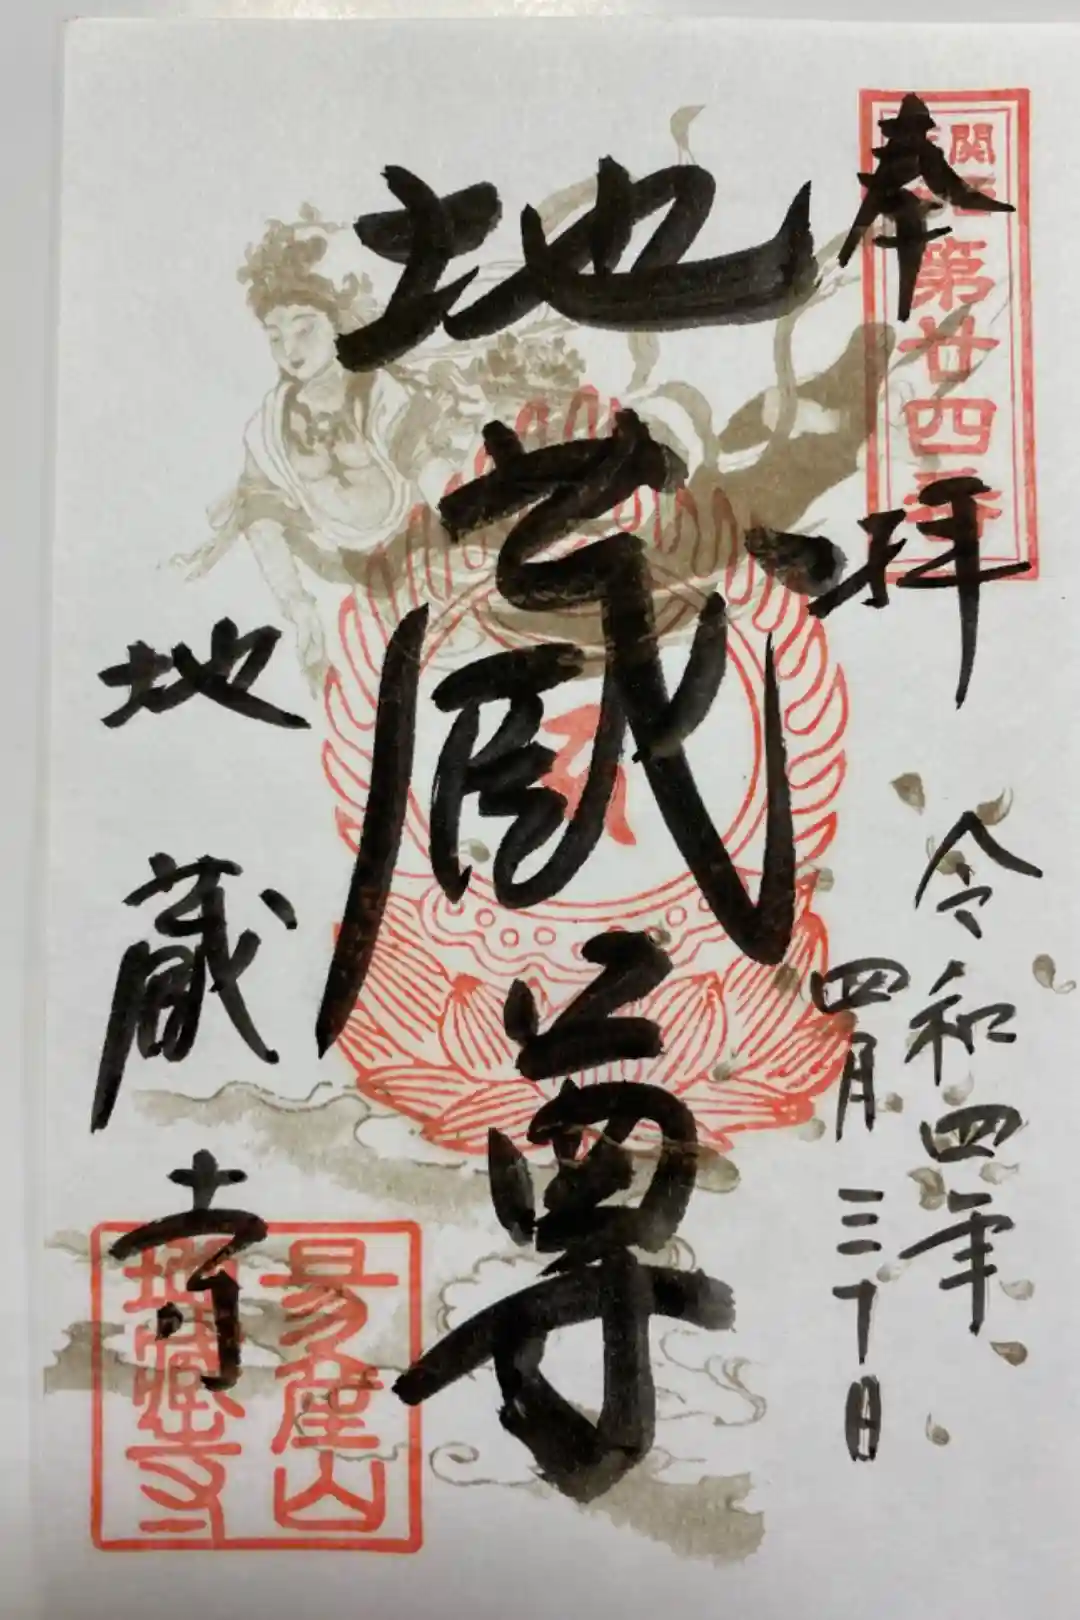 奉拝
第廿四番
令和四年
四月三十日
地蔵尊
地蔵寺
易産山
地蔵寺